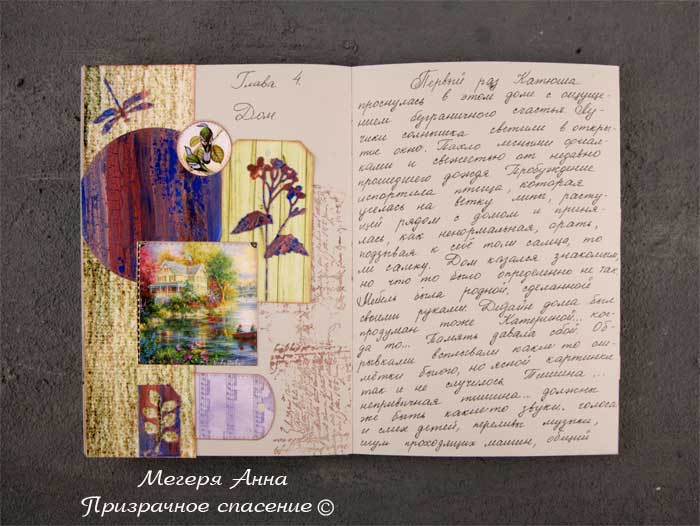 Глава 4.
Дом
Первый раз Катюша
проснулась в этом доме с ощуще-
нием безграничного счастья. Лу-
чики солнышка светили в откры-
тое окно. Пахло лесными фиал-
ками и свежестью от недавно
прошедшего дождя. Пробуждение
испортила птица, которая
уселась на ветку липы, расту-
щей рядом с домом и приня-
лась, как ненормальная, орать,
подзывая к себе то ли самца, то
ли самку. Дом казался знакомым,
но что то было определенно не так.
Мебель была родной, сделанной
своими руками. Дизайн дома был
продуман тоже Катюшей... ког-
да то... Память давала сбой. Об-
рывками всплывали какие то от-
метки былого, но ясной картинки
так и не случилось. Тишина...
непривычная тишина... должны
же быть какие то звуки. голоса
и смех детей, переливы музыки,
шум проходящих машин, общий
Мегеря Анна
Призрачное спасение ©